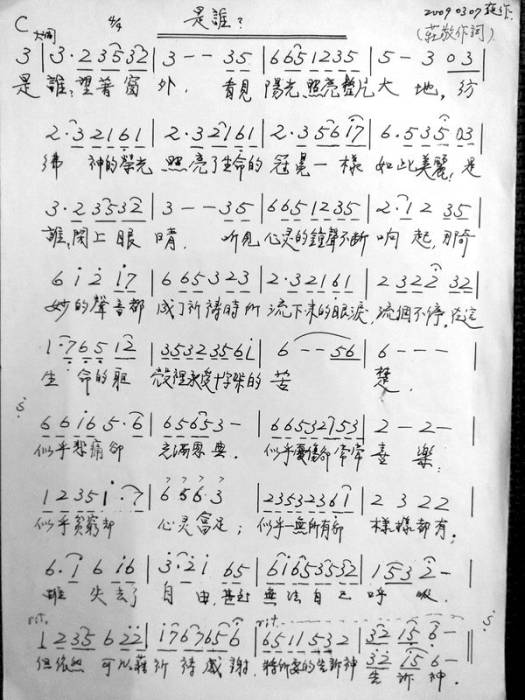 是誰？
2009 03 07
C 大調 4/4
(莊敬作詞)
3 | 3·23532 | 3 - - 35 | 6651235 | 5 - 303 |
是誰，望著窗外．看見陽光照亮整片大地，彷
2·32161 | 2·32161 | 2·35617 | 6·53503 |
彿神的榮光照亮了生命的冠冕一樣如此美麗，是
3·23532 | 3 - - 35 | 6651235 | 2·12 35 |
誰，閉上眼睛．听見心灵的鐘聲不断响起，那奇
6 1 2 17 | 665323 | 2·32161 | 2322 32 |
妙的聲音都成了祈禱時所流下來的眼淚，流個不停，從這
1·76512 | 35323561 | 6 - - 56 | 6 - - - |
生命的軀殼裡承受十字架的苦楚．
66165·6 | 65653 - | 66532753 | 2 - 2 - |
似乎悲痛卻充滿恩典．似乎憂傷卻常常喜樂；
12351·7 | 656·3 | 23532361 | 2322 |
似乎貧窮卻心灵富足；似乎一無所有卻樣樣都有，
6·1616 | 3·21 65 | 61653532 | 1532 - |
雖失去了自由，甚至無法自己呼吸．
rit. rit.
1235622 | 1767656 | 6511532 | 32 15 6 - ||
但依然可以藉祈禱感謝，將所要的告訴神
32 15 6 -
告訴神．